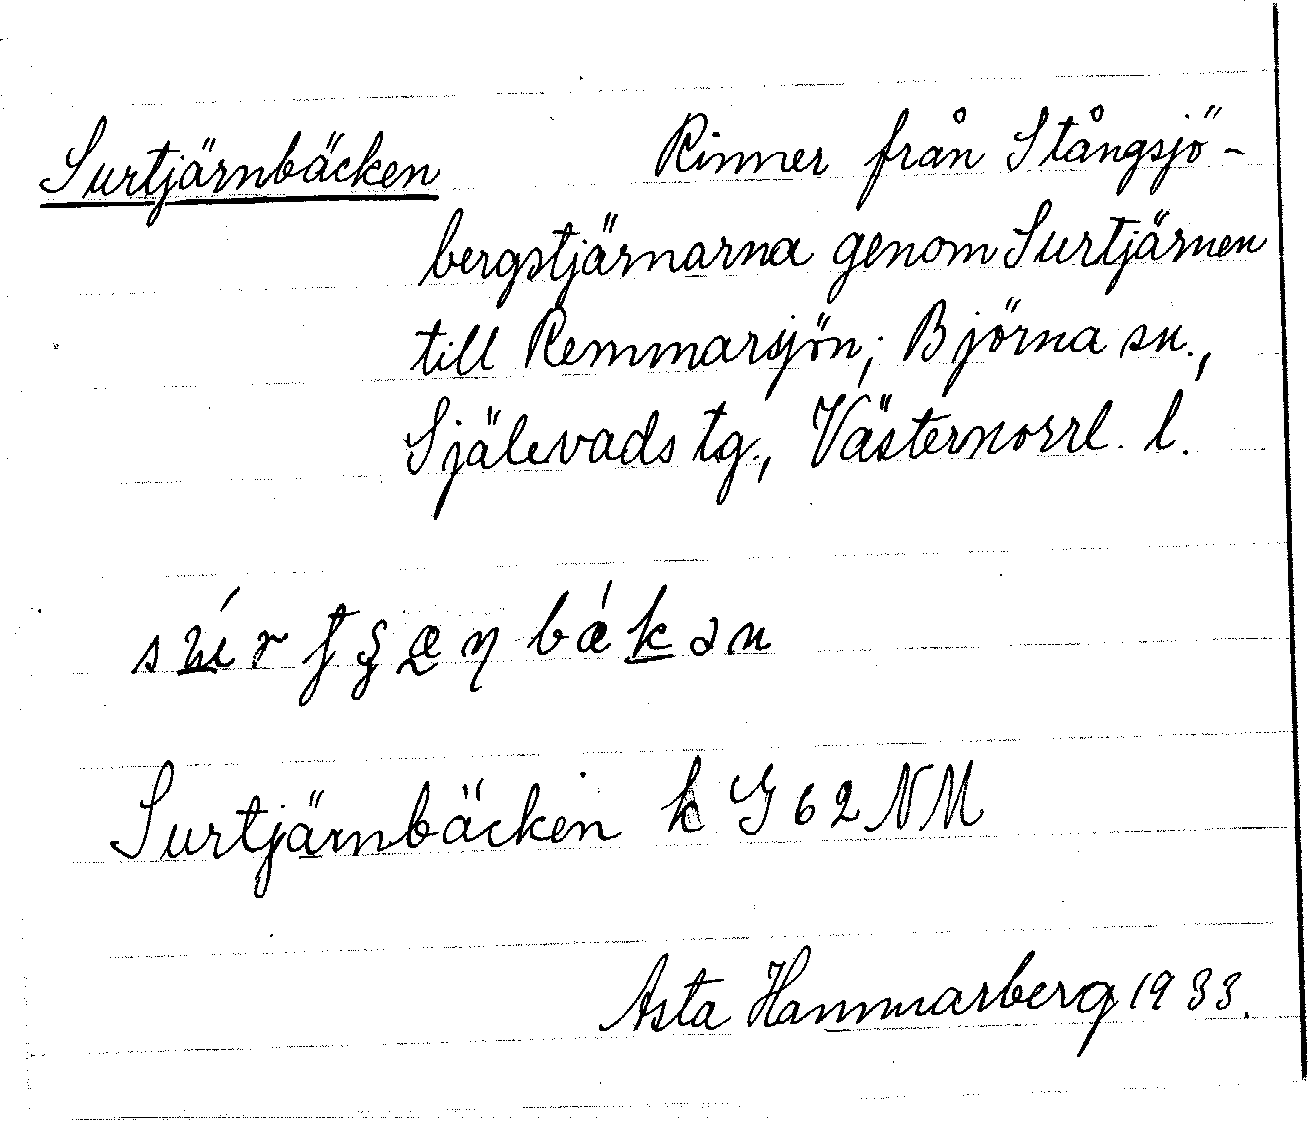 Surtjärnbäcken Rinner från Stångsjö-
bergstjärnarna genom Surtjärnen
till Remmarsjön; Björna sn.,
Själevads tg., Västernorrl. l.
Surtjärnbäcken k G 62 NM
Asta Hammarberg 1933.